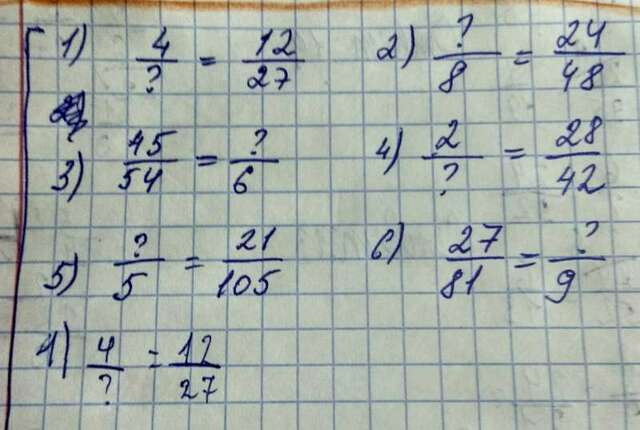 1) 4/? = 12/27 2) ?/8 = 24/48
3) 45/54 = ?/6 4) 2/? = 28/42
5) ?/5 = 21/105 6) 27/81 = ?/9
1) 4/? = 12/27